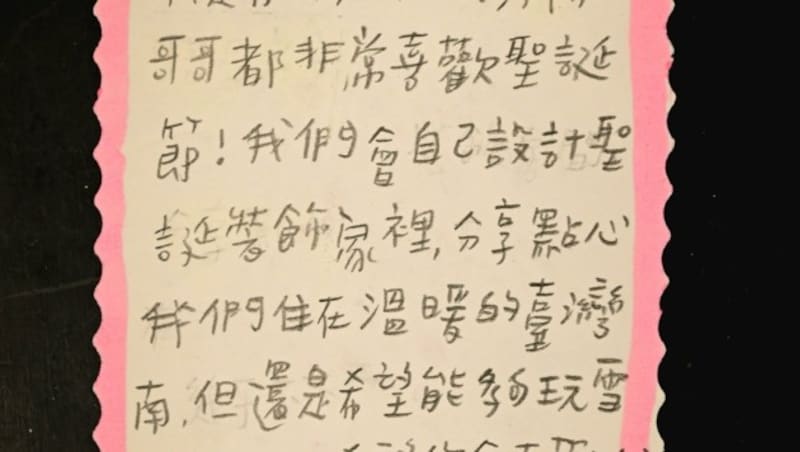 哥哥都非常喜歡聖誕
節！我們會自己設計聖
誕裝飾家裡,分享點心
我們住在溫暖的臺灣
南,但還是希望能夠玩雪